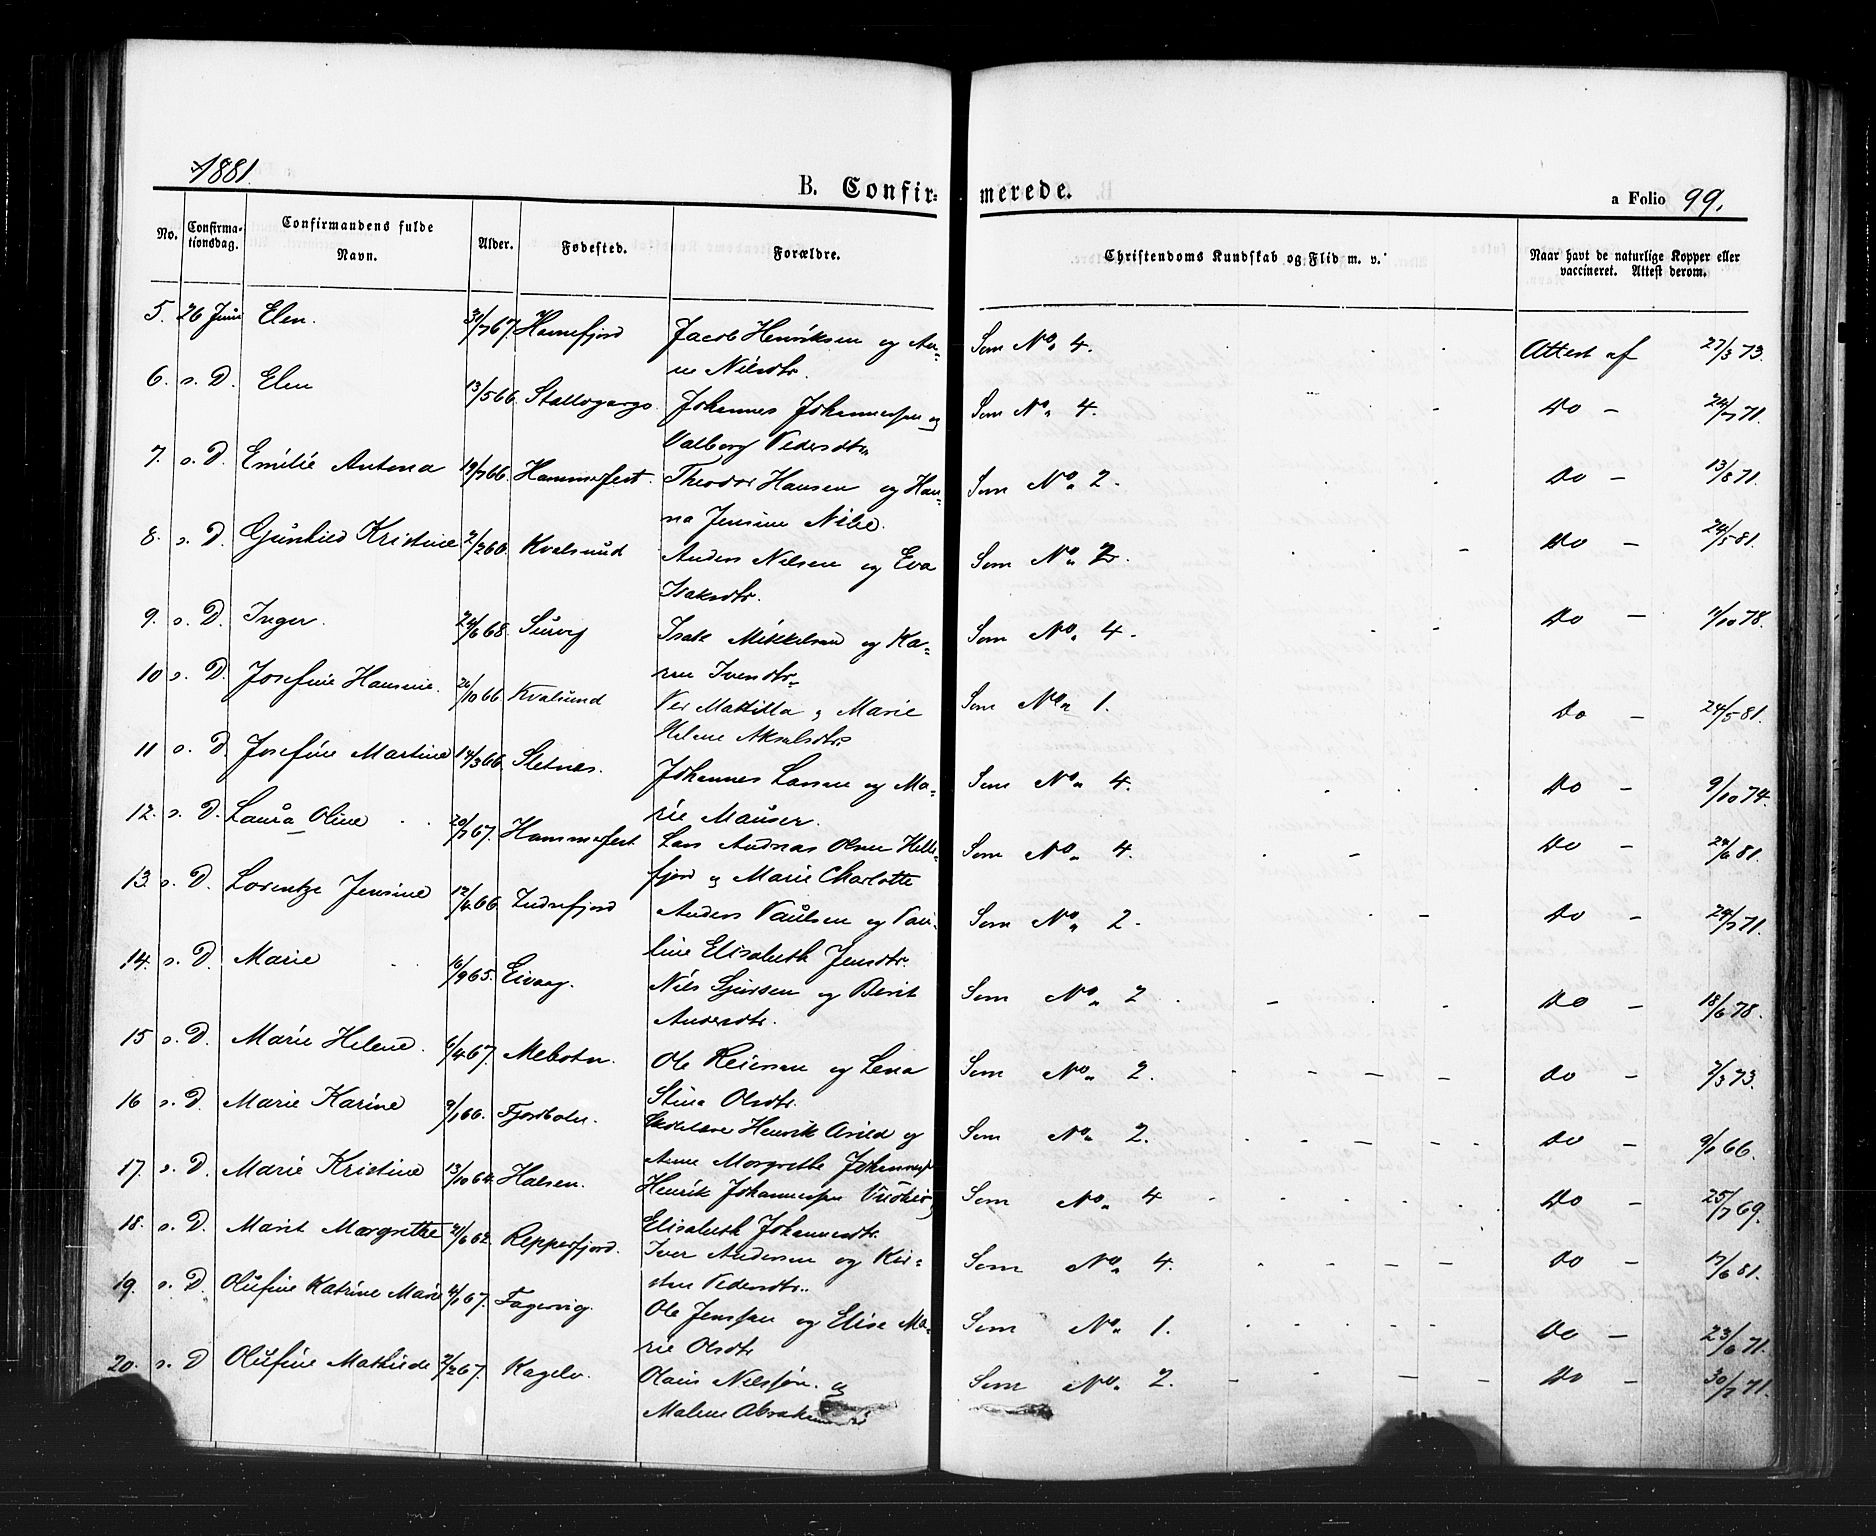 1881.
B. Confir- merede.
a Folio 99.
No. Confirma-tionsdag. Confirmandens fulde Navn. Alder. Fødested. Forældre. Christendoms Kundskab og Flid m. v. Naar havt de naturlige Kopper eller vaccineret. Attest derom.
5. 26 Juni Elen. 31/7 67. Hannefjord Jacob Henriksen og An- Som No. 4. Attest af 27/3 73.
ne Nilsdtr.
6. s. D. Elen 13/5 66. Johannes Johannessen og Som No. 4. Do - 24/7 71.
Valborg Pedersdtr
7. s. D. Emilie Antona 19/7 66. Hammerfest. Theodor Hansen og Han- Som No. 2. Do - 13/8 71.
na Jensine
8. s. D. Gunhild Kristine 2/2 60. Kvalsund Anders Nilsen og Eva Som No. 2. Do - 24/5 81.
Isaksdtr.
9. s. D. Inger. 24/6 68. Isak Mikkelsen og Ka- Som No. 4. Do - 11/10 78.
ren Ivendtr.
10 s. D. Josefine Hansine. 26/10 66 Kvalsund Per Mattilla og Marie Som No. 1. Do - 24/5 81.
Helene Akselsdtr
11 s. D. Josefine Martine 14/3 66. Sletnes. Johannes Larsen og Ma- Som No. 4. Do - 9/10 74.
rie Mauser.
12. s. D. Laura Oline 20/7 67. Hammerfest Lars Andreas Olsen Hille- Som No. 4. Do - 24/6 81.
fjord og Marie Charlotte
13. s. D. Lorentze Jensine 12/4 66. Indrefjord Anders Paulsen og Pau- Som No. 2. Do - 24/7 71.
line Elisabeth Jensdtr.
14. s. D. Marie 16/9 65. Eivaag. Nils Sjursen og Berit Som No. 2 Do - 18/6 78.
Andersdtr.
15 s. D. Marie Helene. 6/4 67. Mebotn. Ole Reiersen og Lena Som No. 2. Do - 7/3 73.
Stina Olsdtr.
16 s. D. Marie Karine 9/1 66. Fjordbotn. Henrik Arild og Som No. 2. Do - 9/1 66.
Anne Margrethe
17. s. D. Marie Kristine 13/10 64. Halsen. Henrik Johannessen Som No. 4 Do - 25/7 69.
Elisabeth Johannesdtr.
18. s. D. Marit Margrethe 21/6 62. Repperfjord. Iver Andersen og Kir- Som No. 4. Do - 17/6 81.
sten Pedersdtr.
19. s. D. Olufine Katrine Marie 4/1 67. Fagervig. Ole Jenssen og Elise Ma- Som No. 1. Do - 23/6 71.
rie Olsdtr
20. s. D Olufine Mathilde 2/2 67. Kagelv. Olaus Nilssøn og Som No. 2. Do - 30/7 71.
Malene